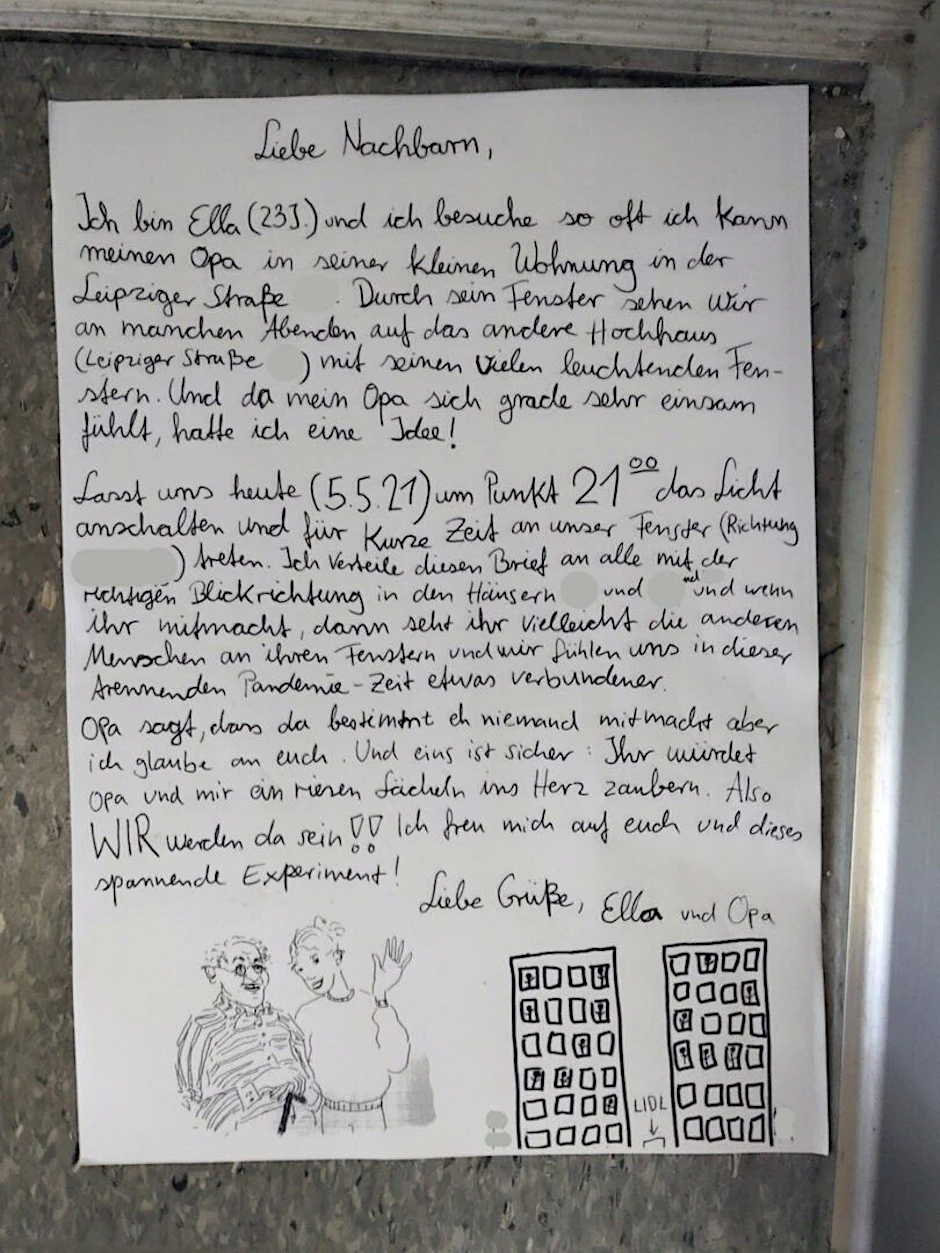 Liebe Nachbarn,
Ich bin Ella (23J.) und ich besuche so oft ich kann
meinen Opa in seiner kleinen Wohnung in der
Leipziger Straße . Durch sein Fenster sehen wir
an manchen Abenden auf das andere Hochhaus
(Leipziger Straße ) mit seinen vielen leuchtenden Fen-
stern. Und da mein Opa sich grade sehr einsam
fühlt, hatte ich eine Idee!
Lasst uns heute (5.5.21) um Punkt 21⁰⁰ das Licht
anschalten und für kurze Zeit an unser Fenster (Richtung
) treten. Ich verteile diesen Brief an alle mit der
richtigen Blickrichtung in den Häusern und und wenn
ihr mitmacht, dann seht ihr vielleicht die anderen
Menschen an ihren Fenstern und wir fühlen uns in dieser
trennenden Pandemie-Zeit etwas verbundener.
Opa sagt, dass da bestimmt eh niemand mitmacht aber
ich glaube an euch. Und eins ist sicher: Ihr würdet
Opa und mir ein riesen Lächeln ins Herz zaubern. Also
WIR werden da sein!! Ich freu mich auf euch und dieses
spannende Experiment!
Liebe Grüße, Ella und Opa
LIDL